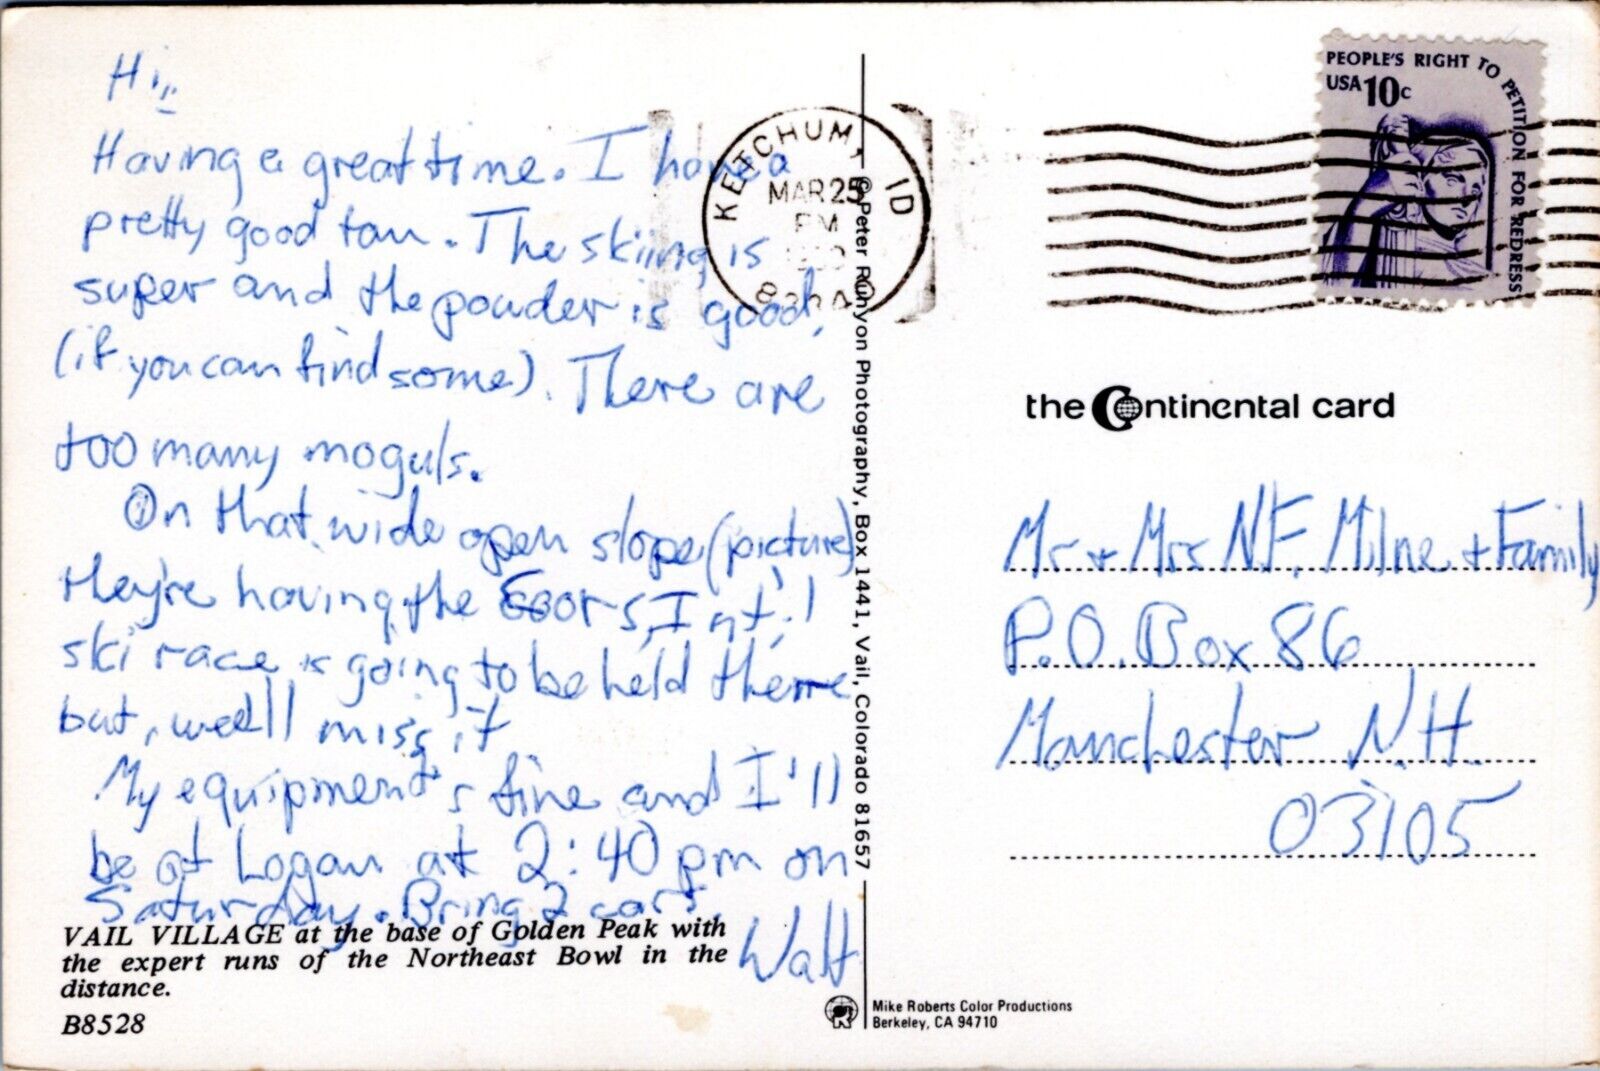 Hi,,
Having a great time. I have a
pretty good tan. The skiing is
super and the powder is good,
(if you can find some). There are
too many moguls.
On that wide open slope (picture)
they're having the Coors, Int'l
ski race is going to be held there
but, we'll miss it
My equipment's fine and I'll
be at Logan at 2:40 pm on
Saturday. Bring 2 cars.
Walt
VAIL VILLAGE at the base of Golden Peak with
the expert runs of the Northeast Bowl in the
distance.
B8528
© Peter Runyon Photography, Box 1441, Vail, Colorado 81657
KETCHUM, ID
MAR 25
PM
PEOPLE'S RIGHT TO PETITION FOR REDRESS
USA 10c
the Continental card
Mr + Mrs N.F. Milne + Family
P.O. Box 86
Manchester N.H.
03105
Mike Roberts Color Productions
Berkeley, CA 94710